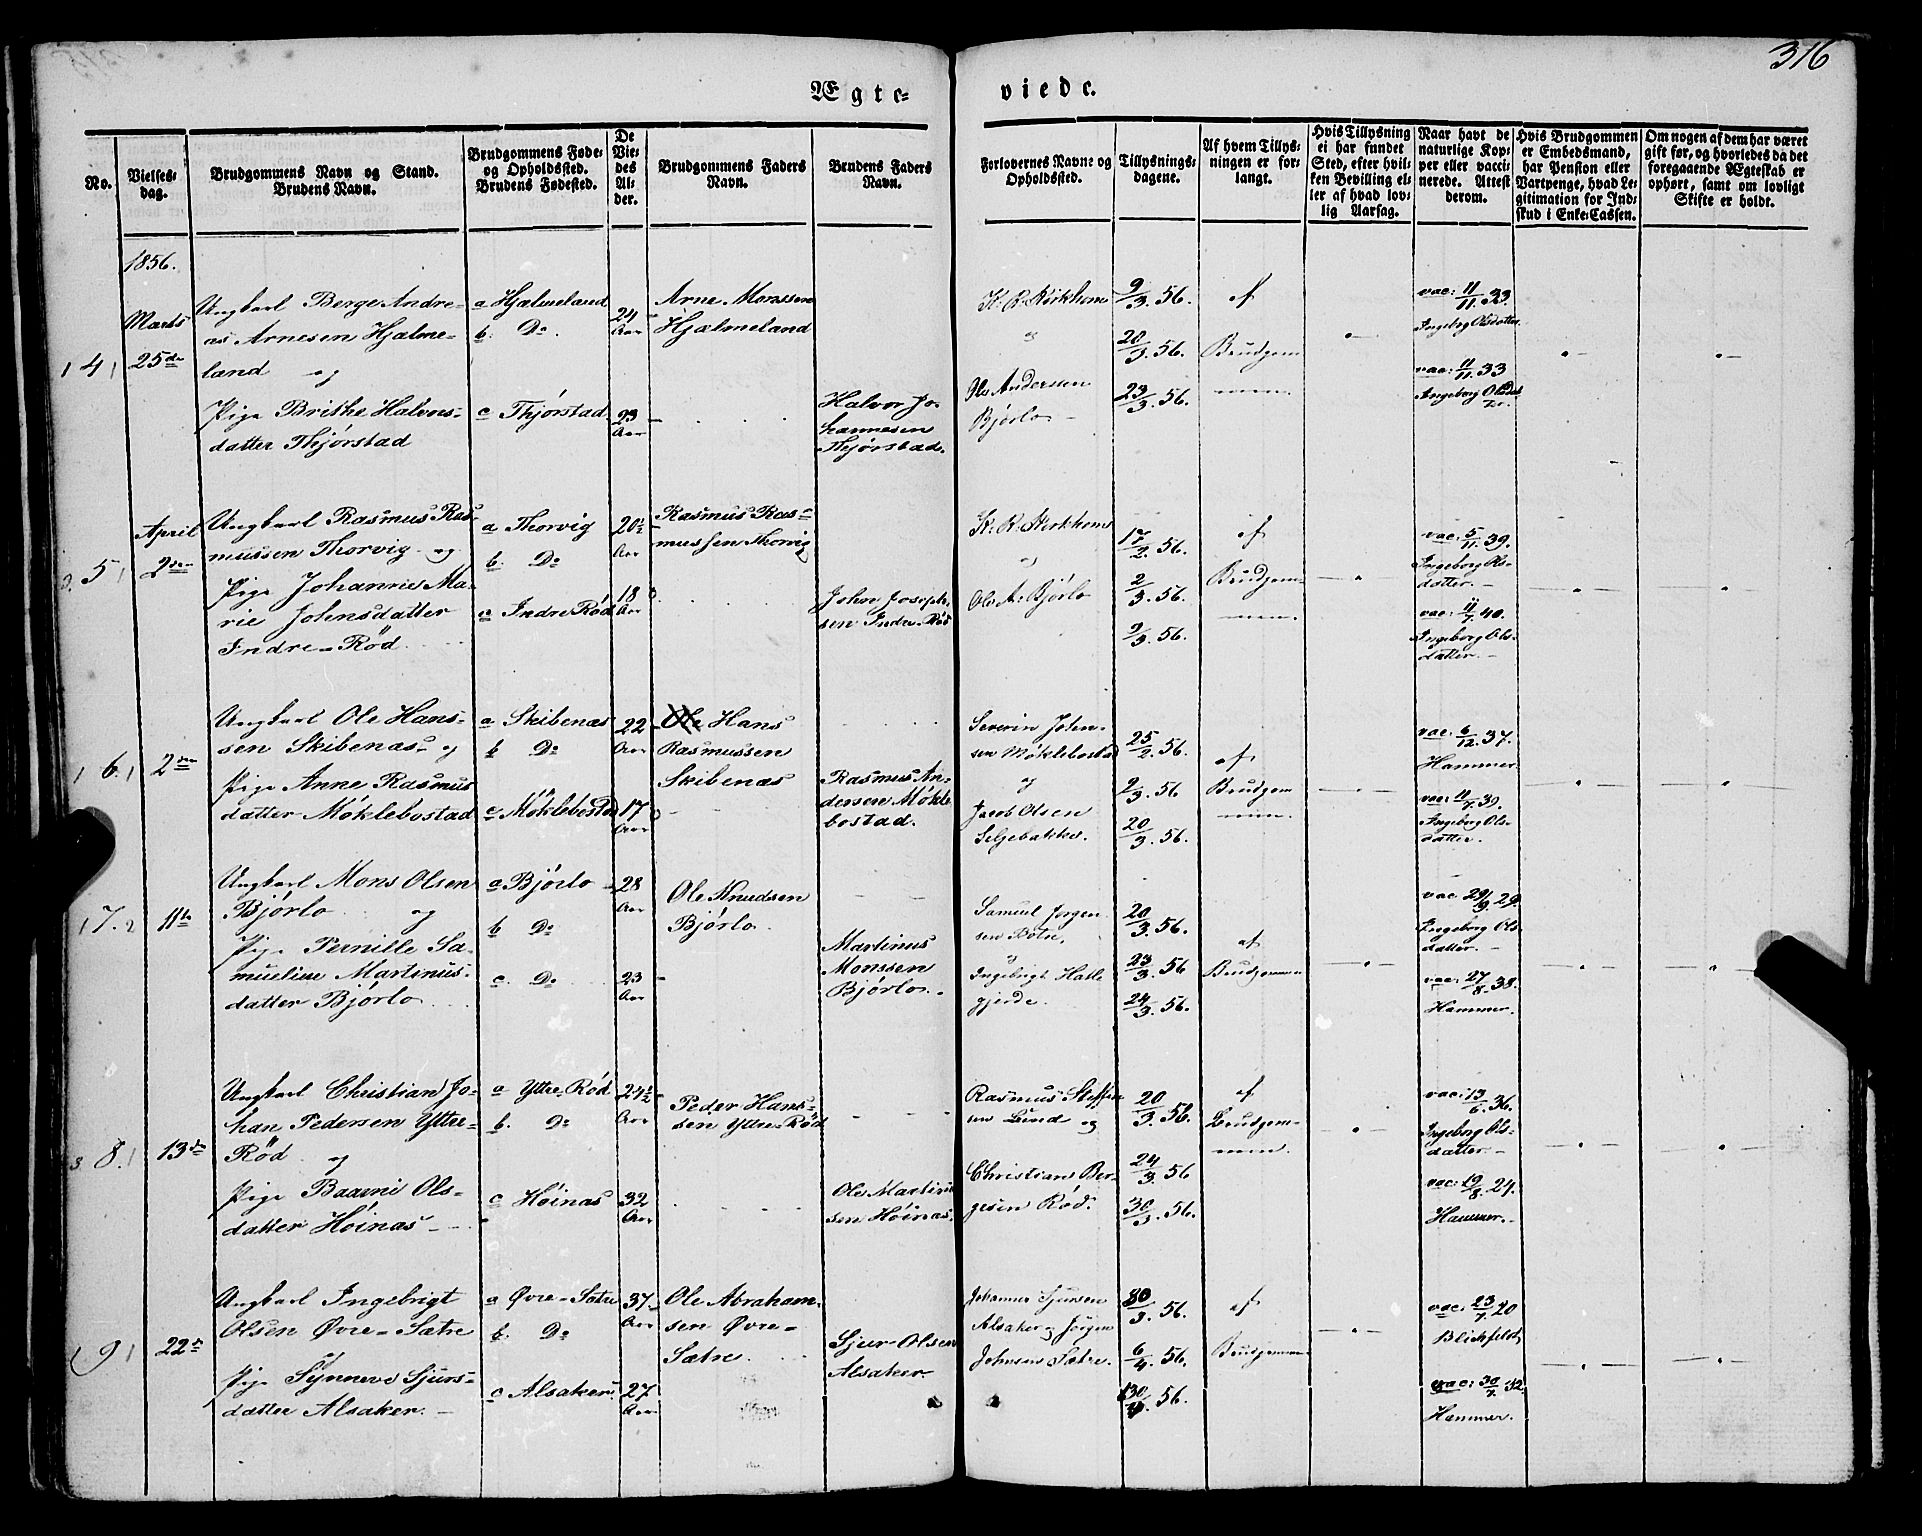 316
Ægte-
viede.
No.
Vielses-
dag.
Brudgommens Navn og Stand.
Brudens Navn.
Brudgommens Føde-
og Opholdssted.
Brudens Fødested.
De
Vie-
des
Al-
der.
Brudgommens Faders
Navn.
Brudens Faders
Navn.
Forlovernes Navne og
Opholdssted.
Tillysnings-
dagene.
Af hvem Tillys-
ningen er for-
langt.
Hvis Tillysning
ei har fundet
Sted, efter hvil-
ken Bevilling el-
ler af hvad lov-
lig Aarsag.
Naar havt de
naturlige Kop-
per eller vacci-
nerede. Attest
derom.
Hvis Brudgommen
er Embedsmand,
har Pension eller
Vartpenge, hvad Le-
gitimation for Ind-
skud i Enke-Cassen.
Om nogen af dem har været
gift før, og hvorledes da det
foregaaende Ægteskab er
ophørt, samt om lovligt
Skifte er holdt.
1856.
4
Marts
25de
Ungkarl Berge Andre-
as Arnesen Hjelme-
land og
Pige Brithe Halvors-
datter Thjørstad
a Hjelmeland
b. Do.
c Thjørstad
24
Aar
23
Aar
Arne Monssen
Hjælmeland
Halvor Jo-
hannesen
Thjørstad.
K: R: Kirkhorn
og
Ole Andersen
Bjørlo
9/3. 56.
20/3. 56.
23/3. 56.
af
Brudgom
men.
vac: 11/11. 33.
Ingeborg Olsdatter
vac: 11/11. 33
Ingeborg Olsdat
ter.
5
April
2den
Ungkarl Rasmus Ras-
mussen Thorvig og
Pige Johanne Ma-
rie Johnsdatter
Indre-Rød.
a Thorvig
b. Do
c Indre Rød
20½
Aar
18
Aar
Rasmus Ras-
mussen Thorvig
John Joseph-
sen Indre-Rød
K: R: Kirkhorn
og
Ole A: Bjørlo
17/2. 56.
2/3. 56.
9/3. 56.
af
Brudgom-
men.
vac: 5/11. 39.
Ingeborg Ols-
datter.
vac: 11/7. 40.
Ingeborg Ols-
datter.
6.
2den
Ungkarl Ole Hans-
sen Skibenæs og
Pige Anne Rasmus
datter Møklebostad
a Skibenæs
b Do
c Møklebostad
22
Aar
17
Aar
Ole Hans
Rasmussen
Skibenæs
Rasmus An-
dersen Møkle
bostad.
Severin Johan-
sen Møklebostad
og
Jacob Olsen
Seljebakke.
25/2. 56.
2/3. 56
20/3. 56.
af
Brudgom
men.
vac: 6/12. 37.
Hammer
vac: 11/7. 39.
Ingeborg Ols-
datter.
7.
11te
Ungkarl Mons Olsen
Bjørlo og
Pige Pernille Sa-
mueline Martinus-
datter Bjørlo
a Bjørlo
b Do
c. Do
28
Aar
23
Aar
Ole Knudsen
Bjørlo.
Martinus
Monssen
Bjørlo.
Samuel Jørgen
sen Botre,
og
Ingebrigt Hatle
gjerde.
20/3. 56.
23/3. 56
24/3. 56.
af
Brudgommen
vac: 29/9. 29.
Ingeborg Ols-
datter.
vac: 27/8. 38.
Hammer.
8.
13de
Ungkarl Christian Jo-
han Pedersen Yttre-
Rød og
Pige Baarni Ols-
datter Høinas
a Yttre Rød
b. Do
c Høinas
24½
Aar
32
Aar
Peder Hans-
sen Yttre-Rød
Ole Martinus
sen Høinas.
Rasmus Steffen
sen Lund og
Christian Ber-
gesen Rød.
20/3. 56.
24/3. 56
30/3. 56.
af
Brudgom-
men.
vac: 13/6. 36.
Ingeborg Ols-
datter.
vac: 19/8. 24.
Hammer.
9
22de
Ungkarl Ingebrigt
Olsen Øvre-Sætre
og
Pige Synneve Sjurs-
datter Alsaker.
a Øvre-Sætre
b. Do
c Alsaker.
37
Aar
27
Aar
Ole Abraham-
sen Øvre-
Sætre.
Sjur Olsen
Alsaker
Johannes Sjursen
Alsaker og Jørgen
Johnsen Sætre.
30/3. 56.
6/4. 56.
56.
af
Brudgommen
vac: 23/7. 20
Blichfeldt
vac: 30/7. 32
Hammer.